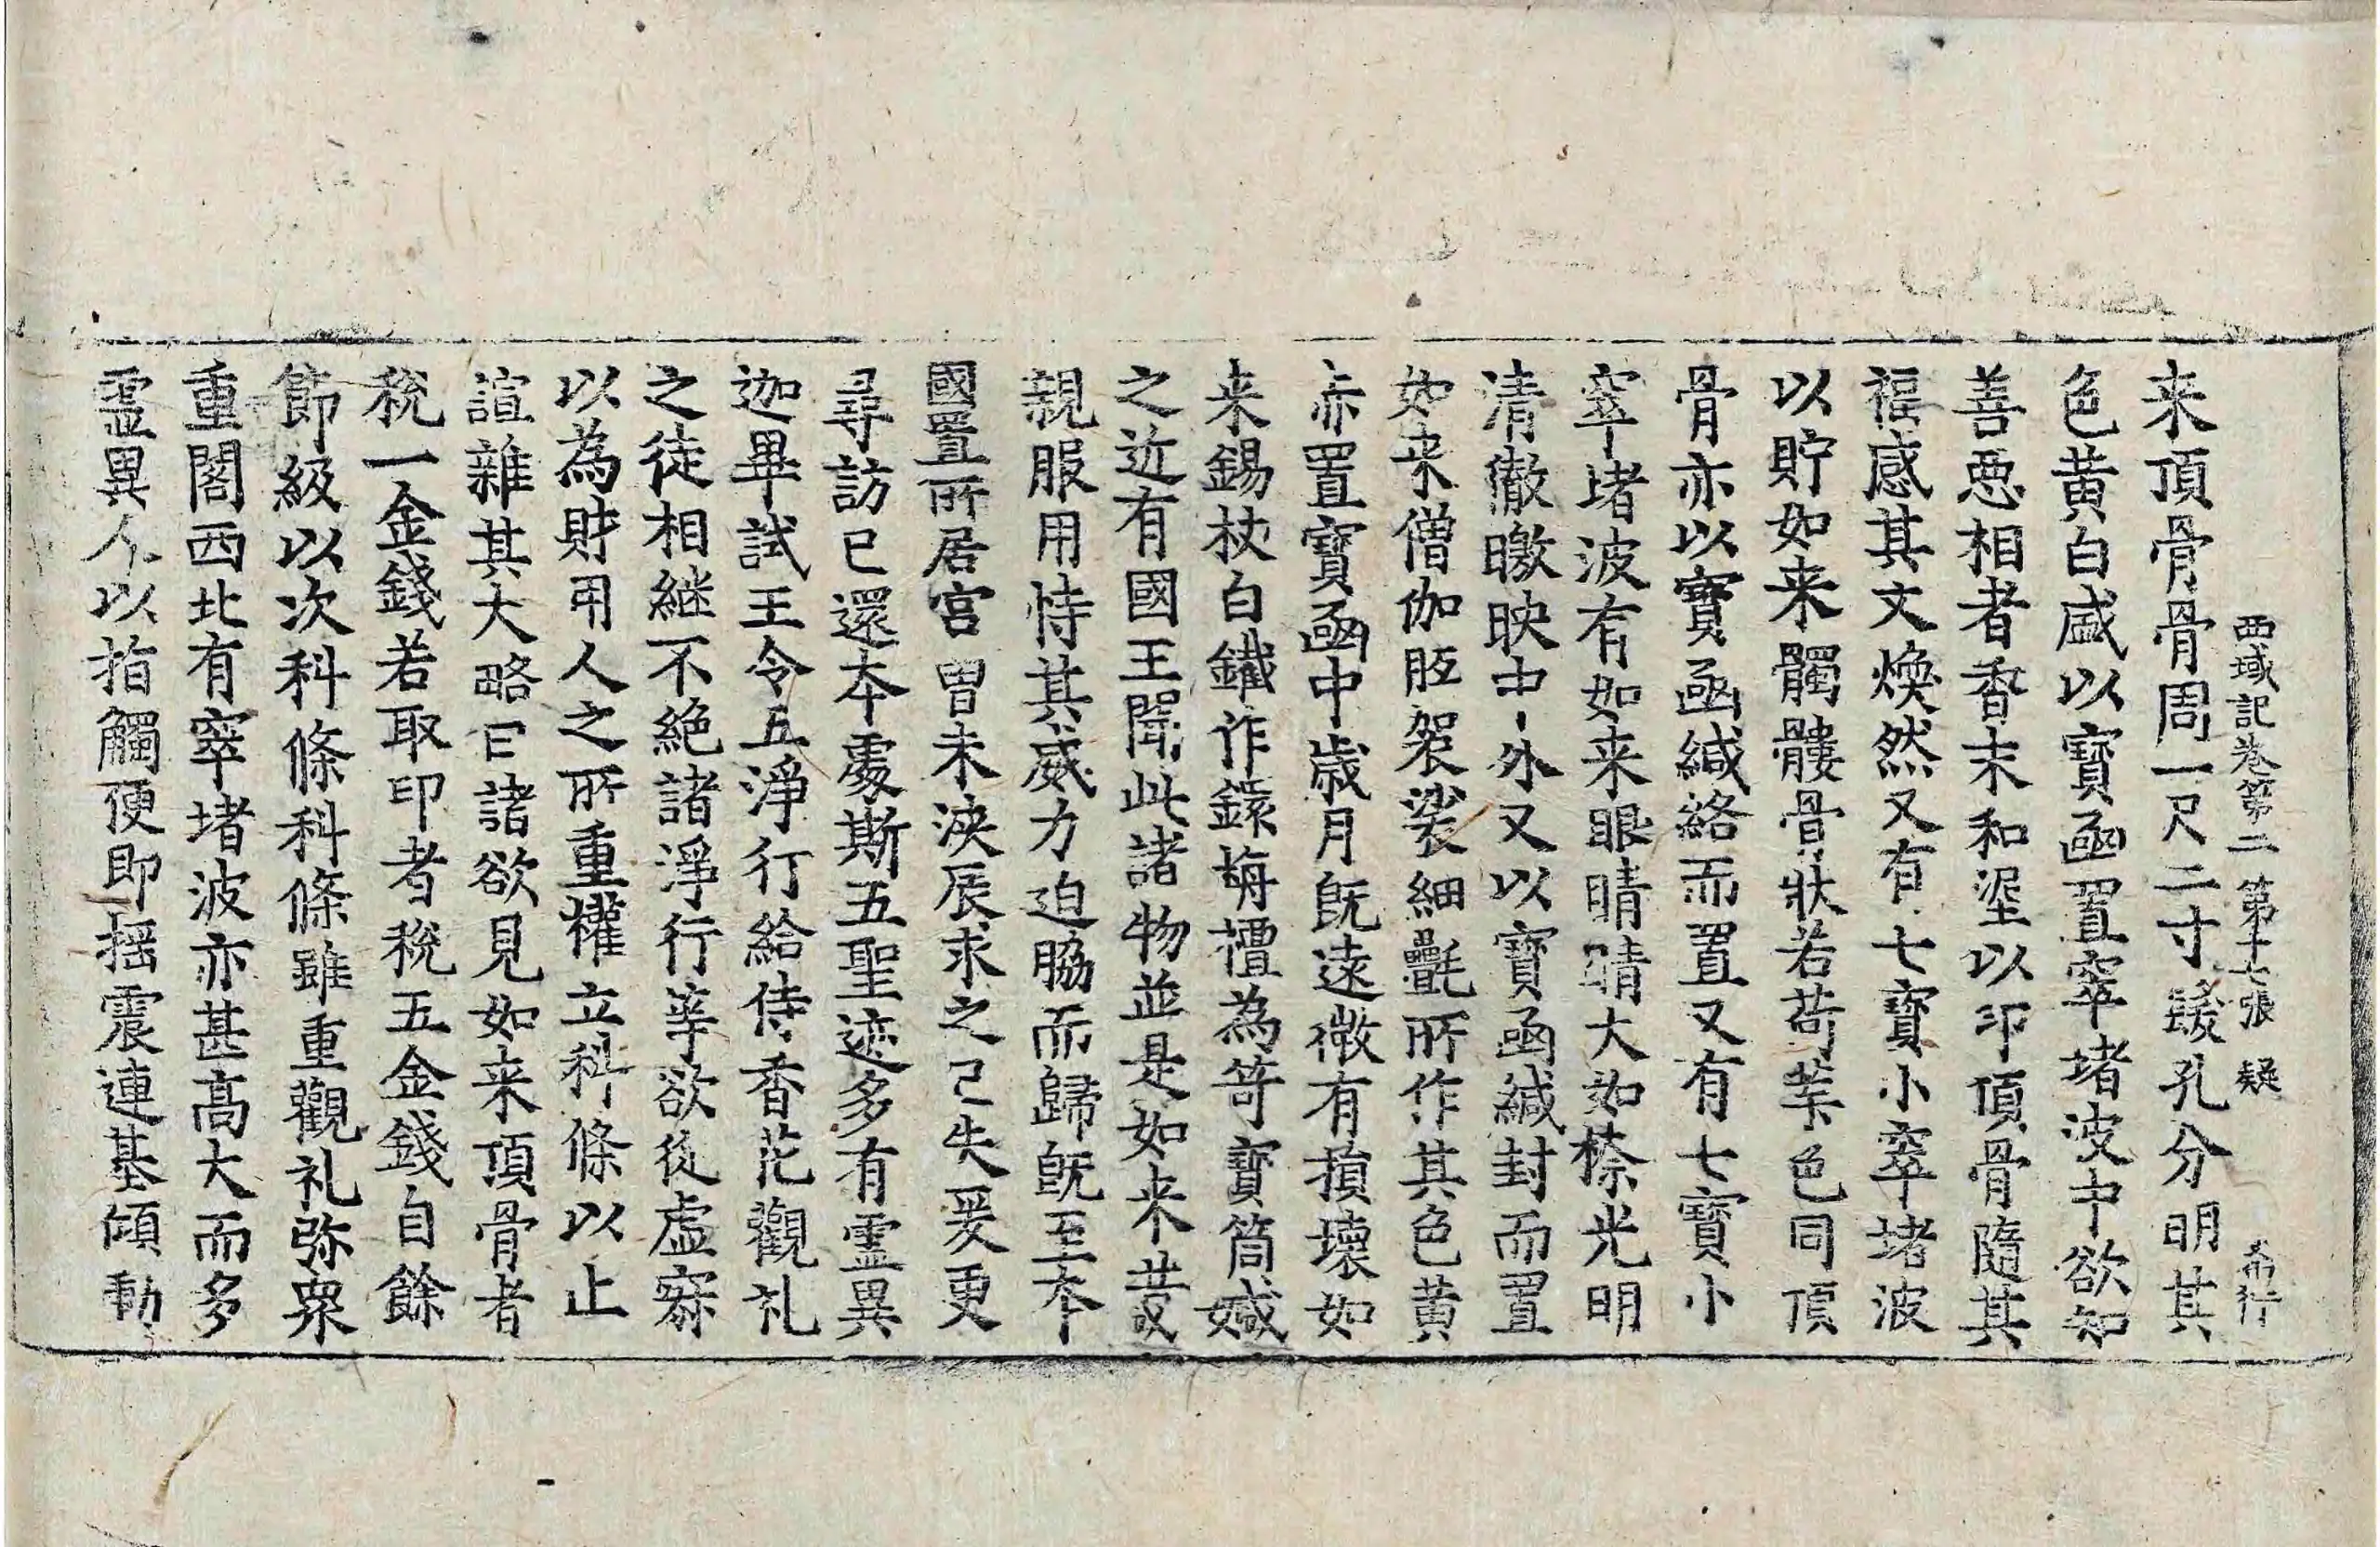 西域記卷第二 第十七張 疑 希行
来頂骨骨周一尺二寸髮孔分明其
色黄白盛以寶函置窣堵波中欲知
善惡相者香末和埿以印頂骨隨其
福感其文煥然又有七寶小窣堵波
以貯如来髑髏骨狀若荷葉色同頂
骨亦以寶函緘絡而置又有七寶小
窣堵波有如来眼睛睛大如㮈光明
清徹皦映中外又以寶函緘封而置
如来僧伽胝袈裟細㲲所作其色黄
赤置寶函中歲月既遠微有損壞如
来錫杖白鐵作鐶栴檀為笴寶筒緘
之近有國王聞此諸物並是如来昔
親服用恃其威力迫脇而歸既至本
國置所居宮曾未浹辰求之已失爰更
尋訪已還本處斯五聖迹多有靈異
迦畢試王令五淨行給侍香花觀礼
之徒相継不絶諸淨行等欲從虛寂
以為財用人之所重權立科條以止
諠雜其大略曰諸欲見如来頂骨者
稅一金錢若取印者稅五金錢自餘
節級以次科條科條雖重觀礼弥衆
重閣西北有窣堵波亦甚高大而多
靈異人以指觸便即摇震連基傾動